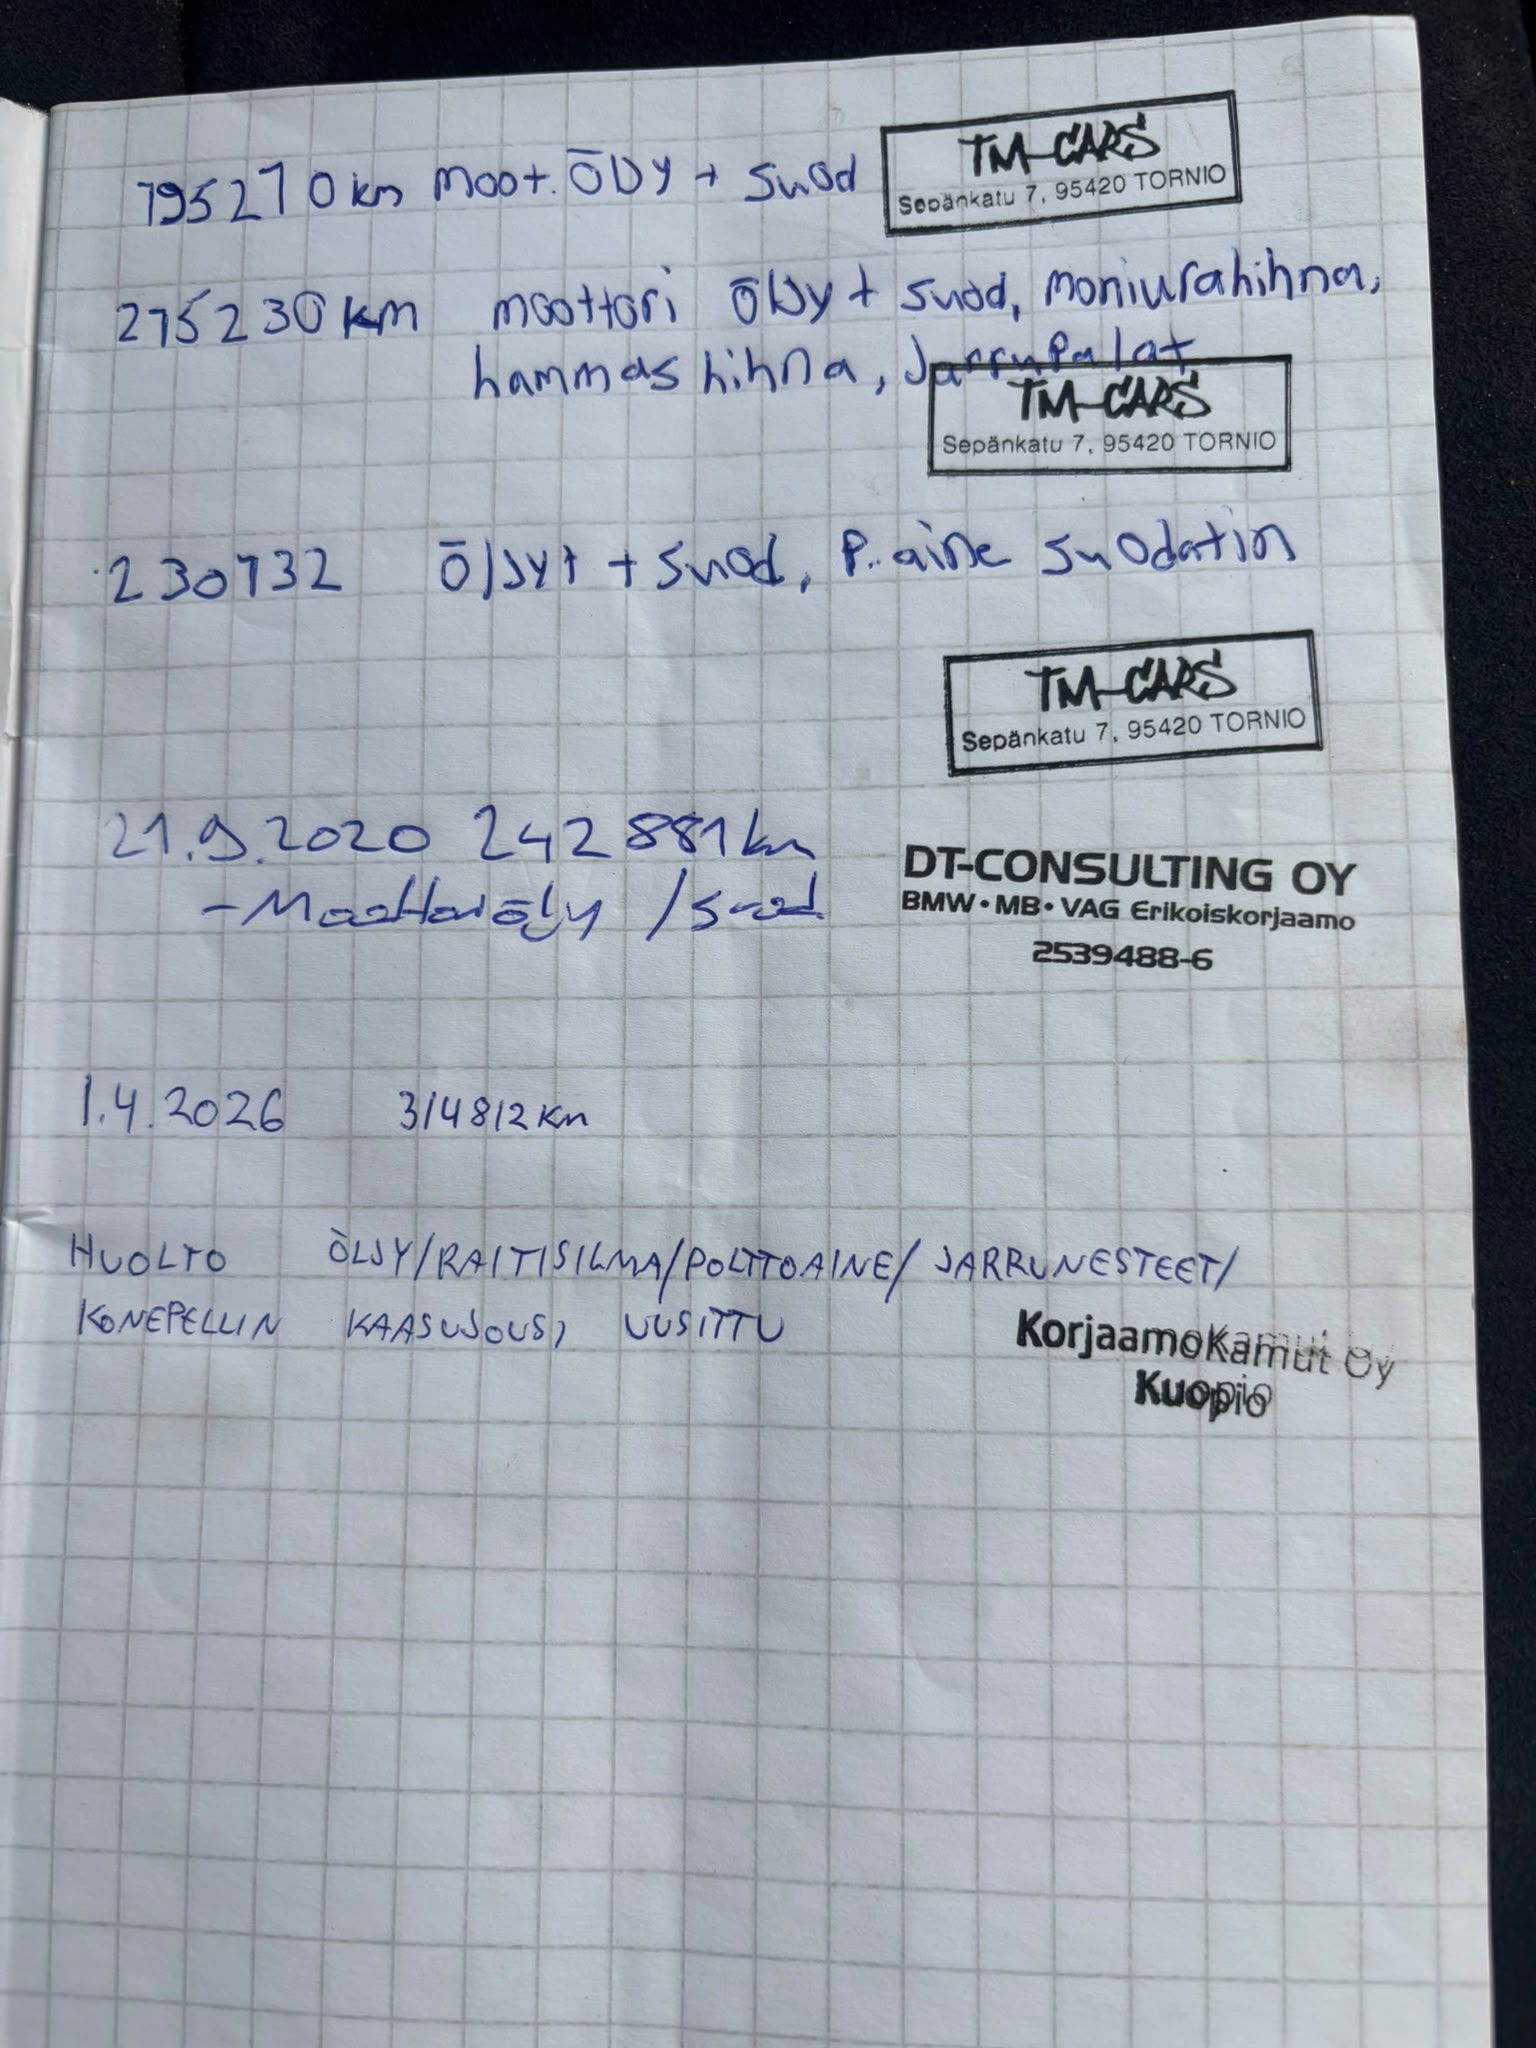 195270 km moot. ÖLJY + suod
TM-CARS
Sepänkatu 7, 95420 TORNIO
215230 km moottori ÖLJy + suod, moniurahihna,
hammashihna, Jarrupalat
TM-CARS
Sepänkatu 7, 95420 TORNIO
230732 öljyt + suod, P.aine suodatin
TM-CARS
Sepänkatu 7, 95420 TORNIO
21.9.2020 242 881 km
- Moottoriöljy / suod
DT-CONSULTING OY
BMW • MB • VAG Erikoiskorjaamo
2539488-6
1.4.2026 314812 Km
HUOLTO ÖLJY/RAITISILMA/POLTTOAINE/ JARRUNESTEET/
KONEPELLIN KAASUJOUSI UUSITTU
KorjaamoKamut Oy
Kuopio